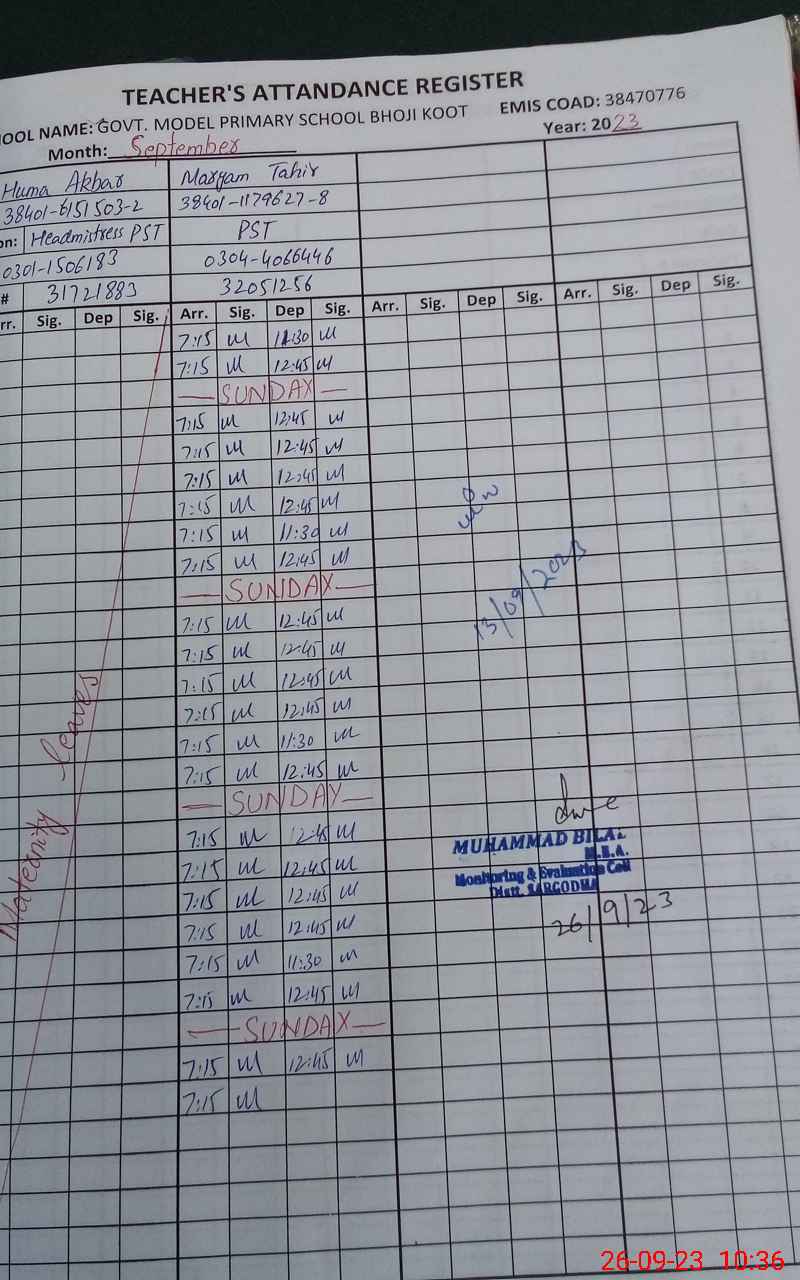 TEACHER'S ATTANDANCE REGISTER
OOL NAME: GOVT. MODEL PRIMARY SCHOOL BHOJI KOOT EMIS COAD: 38470776
Month: September Year: 2023
Huma Akbar Maryam Tahir
38401-6151503-2 38401-1179627-8
on: Headmistress PST PST
0301-1506183 0304-4066446
# 31721883 32051256
rr. Sig. Dep Sig. Arr. Sig. Dep Sig. Arr. Sig. Dep Sig. Arr. Sig. Dep Sig.
7:15 11:30
7:15 12:45
— SUNDAY —
7:15 12:45
7:15 12:45
7:15 12:45
7:15 12:45
7:15 11:30
7:15 12:45
— SUNDAY —
13/09/2023
7:15 12:45
7:15 12:45
7:15 12:45
7:15 12:45
7:15 11:30
7:15 12:45
— SUNDAY —
Maternity leaves
7:15 12:45
7:15 12:45
7:15 12:45
7:15 12:45
7:15 11:30
7:15 12:45
— SUNDAY —
7:15 12:45
7:15
MUHAMMAD BILAL
M.E.A.
Monitoring & Evaluation Cell
Distt. SARGODHA
26/9/23
26-09-23 10:36